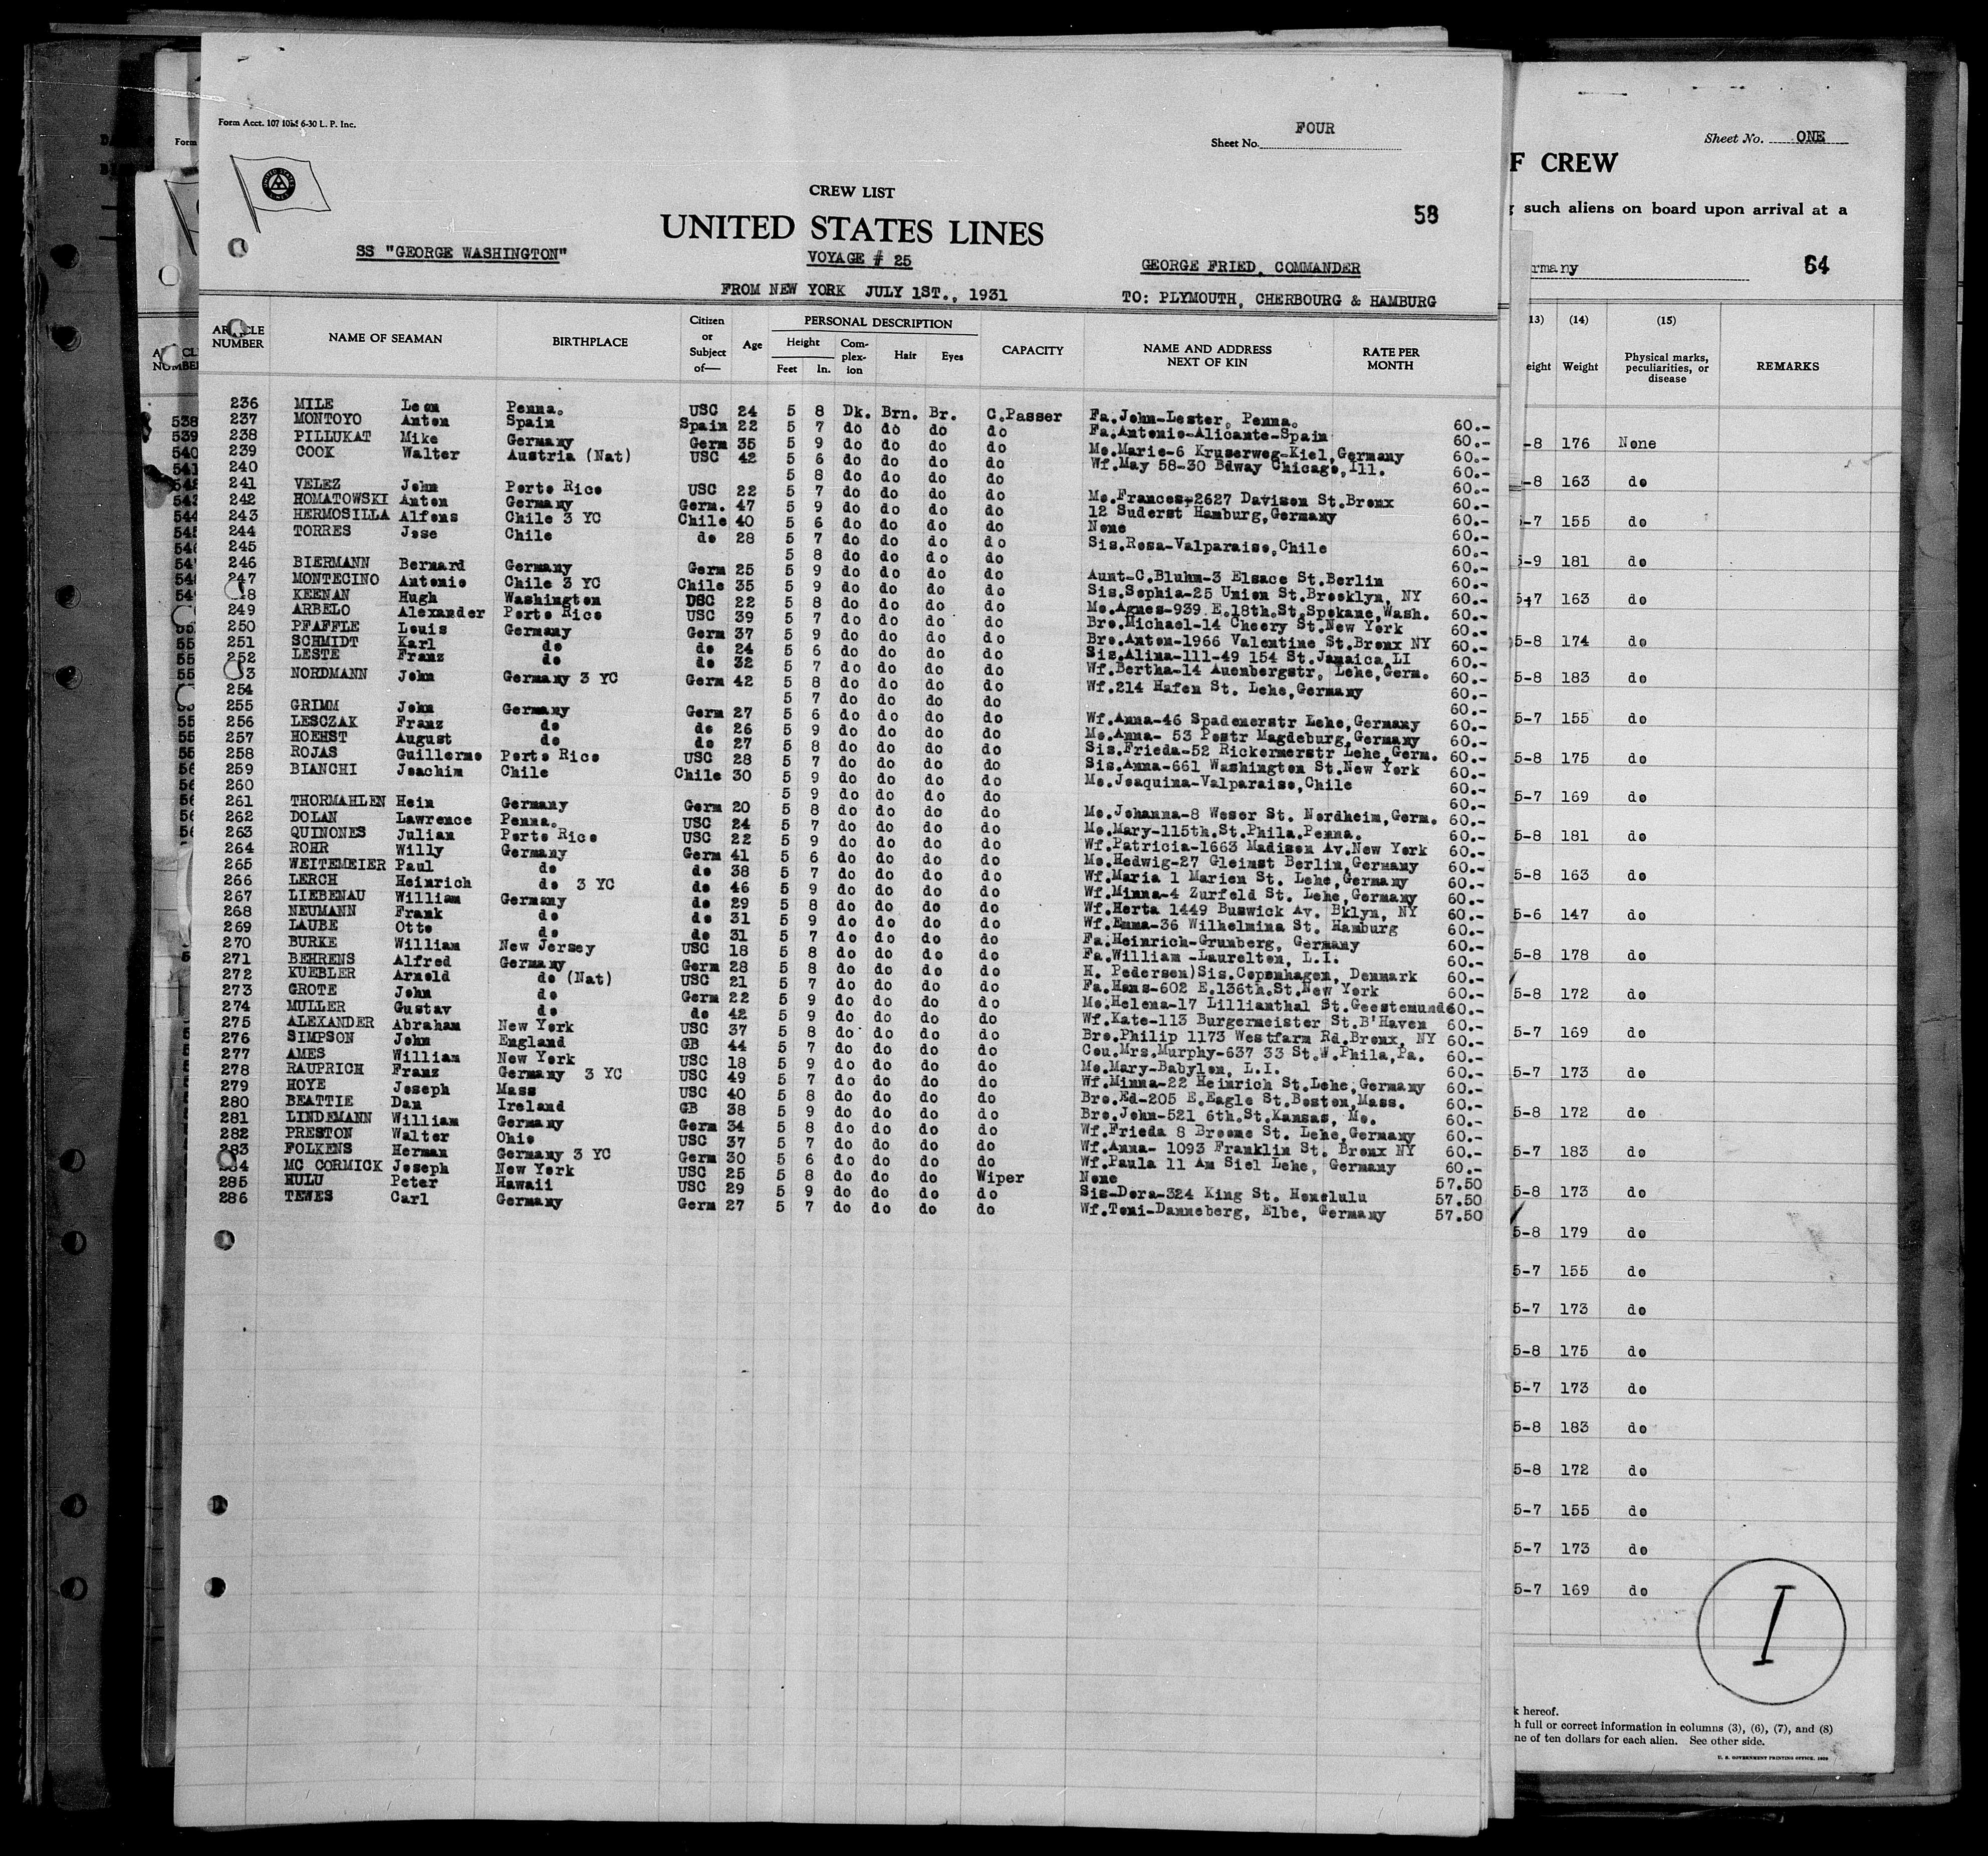 Form Acct. 107 10M 6-30 L. P. Inc.
Sheet No. FOUR
CREW LIST
UNITED STATES LINES
58
SS "GEORGE WASHINGTON"
VOYAGE # 25
GEORGE FRIED, COMMANDER
FROM NEW YORK JULY 1ST., 1931
TO: PLYMOUTH, CHERBOURG & HAMBURG
ARTICLE NUMBER NAME OF SEAMAN BIRTHPLACE Citizen or Subject of— Age PERSONAL DESCRIPTION Height Feet In. Complexion Hair Eyes CAPACITY NAME AND ADDRESS NEXT OF KIN RATE PER MONTH
236 MILE Leon Penna. USC 24 5 8 Dk. Brn. Br. C.Passer Fa.John-Lester, Penna. 60.-
237 MONTOYO Anton Spain Spain 22 5 7 do do do do Fa.Antonio-Alicante-Spain 60.-
238 PILLUKAT Mike Germany Germ 35 5 9 do do do do Mo.Marie-6 Kruserweg-Kiel,Germany 60.-
239 COOK Walter Austria (Nat) USC 42 5 6 do do do do Wf.May 58-30 Bdway Chicago,Ill. 60.-
240 5 8 do do do do 60.-
241 VELEZ John Porto Rico USC 22 5 7 do do do do Mo.Frances-2627 Davison St.Bronx 60.-
242 HOMATOWSKI Anton Germany Germ. 47 5 9 do do do do 12 Suderst Hamburg,Germany 60.-
243 HERMOSILLA Alfons Chile 3 YC Chile 40 5 6 do do do do None 60.-
244 TORRES Jose Chile do 28 5 7 do do do do Sis.Rosa-Valparaiso,Chile 60.-
245 5 8 do do do do 60.-
246 BIERMANN Bernard Germany Germ 25 5 9 do do do do Aunt-C.Bluhm-3 Elsace St.Berlin 60.-
247 MONTECINO Antonio Chile 3 YC Chile 35 5 9 do do do do Sis.Sophia-25 Union St.Brooklyn, NY 60.-
48 KEENAN Hugh Washington USC 22 5 8 do do do do Mo.Agnes-939 E.18th.St.Spokane,Wash. 60.-
249 ARBELO Alexander Porto Rico USC 39 5 7 do do do do Bro.Michael-14 Cheery St.New York 60.-
250 PFAFFLE Louis Germany Germ 37 5 9 do do do do Bro.Anton-1966 Valentine St.Bronx NY 60.-
251 SCHMIDT Karl do do 24 5 6 do do do do Sis.Alina-111-49 154 St.Jamaica LI 60.-
252 LESTE Franz do do 32 5 7 do do do do Wf.Bertha-14 Auenbergstr, Lehe,Germ. 60.-
3 NORDMANN John Germany 3 YC Germ 42 5 8 do do do do Wf.214 Hafen St. Lehe,Germany 60.-
254 5 7 do do do do 60.-
255 GRIMM John Germany Germ 27 5 6 do do do do Wf.Anna-46 Spadenerstr Lehe,Germany 60.-
256 LESCZAK Franz do do 26 5 9 do do do do Mo.Anna- 53 Postr Magdeburg,Germany 60.-
257 HOEHST August do do 27 5 8 do do do do Sis.Frieda-52 Rickermerstr Lehe,Germ. 60.-
258 ROJAS Guillermo Porto Rico USC 28 5 7 do do do do Sis.Anna-661 Washington St.New York 60.-
259 BIANCHI Joachim Chile Chile 30 5 9 do do do do Mo.Joaquina-Valparaiso,Chile 60.-
260 5 9 do do do do 60.-
261 THORMAHLEN Hein Germany Germ 20 5 8 do do do do Mo.Johanna-8 Weser St. Nordheim,Germ. 60.-
262 DOLAN Lawrence Penna. USC 24 5 7 do do do do Mo.Mary-115th.St.Phila.Penna. 60.-
263 QUINONES Julian Porto Rico USC 22 5 9 do do do do Wf.Patricia-1663 Madison Av.New York 60.-
264 ROHR Willy Germany Germ 41 5 6 do do do do Mo.Hedwig-27 Gleimst Berlin,Germany 60.-
265 WEITEMEIER Paul do do 38 5 7 do do do do Wf.Maria 1 Marien St. Lehe,Germany 60.-
266 LERCH Heinrich do 3 YC do 46 5 9 do do do do Wf.Minna-4 Zurfeld St. Lehe,Germany 60.-
267 LIEBENAU William Germany do 29 5 8 do do do do Wf.Herta 1449 Buswick Av. Bklyn, NY 60.-
268 NEUMANN Frank do do 31 5 9 do do do do Wf.Emma-36 Wilhelmina St. Hamburg 60.-
269 LAUBE Otto do do 31 5 7 do do do do Fa.Heinrich-Grunberg, Germany 60.-
270 BURKE William New Jersey USC 18 5 8 do do do do Fa.William -Laurelton, L.I. 60.-
271 BEHRENS Alfred Germany Germ 28 5 8 do do do do H. Pedersen)Sis.Copenhagen, Denmark 60.-
272 KUEBLER Arnold do (Nat) USC 21 5 7 do do do do Fa.Hans-602 E.136th.St.New York 60.-
273 GROTE John do Germ 22 5 9 do do do do Mo.Helena-17 Lillianthal St.Geestemunde60.-
274 MULLER Gustav do do 42 5 9 do do do do Wf.Kate-113 Burgermeister St.B'Haven 60.-
275 ALEXANDER Abraham New York USC 37 5 8 do do do do Bro.Philip 1173 Westfarm Rd.Bronx, NY 60.-
276 SIMPSON John England GB 44 5 7 do do do do Cou.Mrs.Murphy-637 33 St.W.Phila,Pa. 60.-
277 AMES William New York USC 18 5 9 do do do do Mo.Mary-Babylon, L.I. 60.-
278 RAUPRICH Franz Germany 3 YC USC 49 5 7 do do do do Wf.Minna-22 Heinrich St.Lehe,Germany 60.-
279 HOYE Joseph Mass USC 40 5 8 do do do do Bro.Ed-205 E.Eagle St.Boston,Mass. 60.-
280 BEATTIE Dan Ireland GB 38 5 9 do do do do Bro.John-521 6th.St.Kansas, Mo. 60.-
281 LINDEMANN William Germany Germ 34 5 8 do do do do Wf.Frieda 8 Broome St. Lehe,Germany 60.-
282 PRESTON Walter Ohio USC 37 5 7 do do do do Wf.Anna- 1093 Franklin St. Bronx NY 60.-
283 FOLKENS Herman Germany 3 YC Germ 30 5 6 do do do do Wf.Paula 11 Am Siel Lehe, Germany 60.-
84 MC CORMICK Joseph New York USC 25 5 8 do do do Wiper None 57.50
285 HULU Peter Hawaii USC 29 5 9 do do do do Sis-Dora-324 King St. Honolulu 57.50
286 TEWES Carl Germany Germ 27 5 7 do do do do Wf.Toni-Danneberg, Elbe, Germany 57.50
Form
538
539
540
541
543
544
545
Sheet No. ONE
F CREW
such aliens on board upon arrival at a
rmany
64
13) (14) (15)
eight Weight Physical marks, peculiarities, or disease REMARKS
-8 176 None
-8 163 do
-7 155 do
5-9 181 do
5-7 163 do
5-8 174 do
5-8 183 do
5-7 155 do
5-8 175 do
5-7 169 do
5-8 181 do
5-8 163 do
5-6 147 do
5-8 178 do
5-8 172 do
5-7 169 do
5-7 173 do
5-8 172 do
5-7 183 do
5-8 173 do
5-8 179 do
5-7 155 do
5-7 173 do
5-8 175 do
5-7 173 do
5-8 183 do
5-8 172 do
5-7 155 do
5-7 173 do
5-7 169 do
I
k hereof.
h full or correct information in columns (3), (6), (7), and (8)
ne of ten dollars for each alien. See other side.
U. S. GOVERNMENT PRINTING OFFICE.